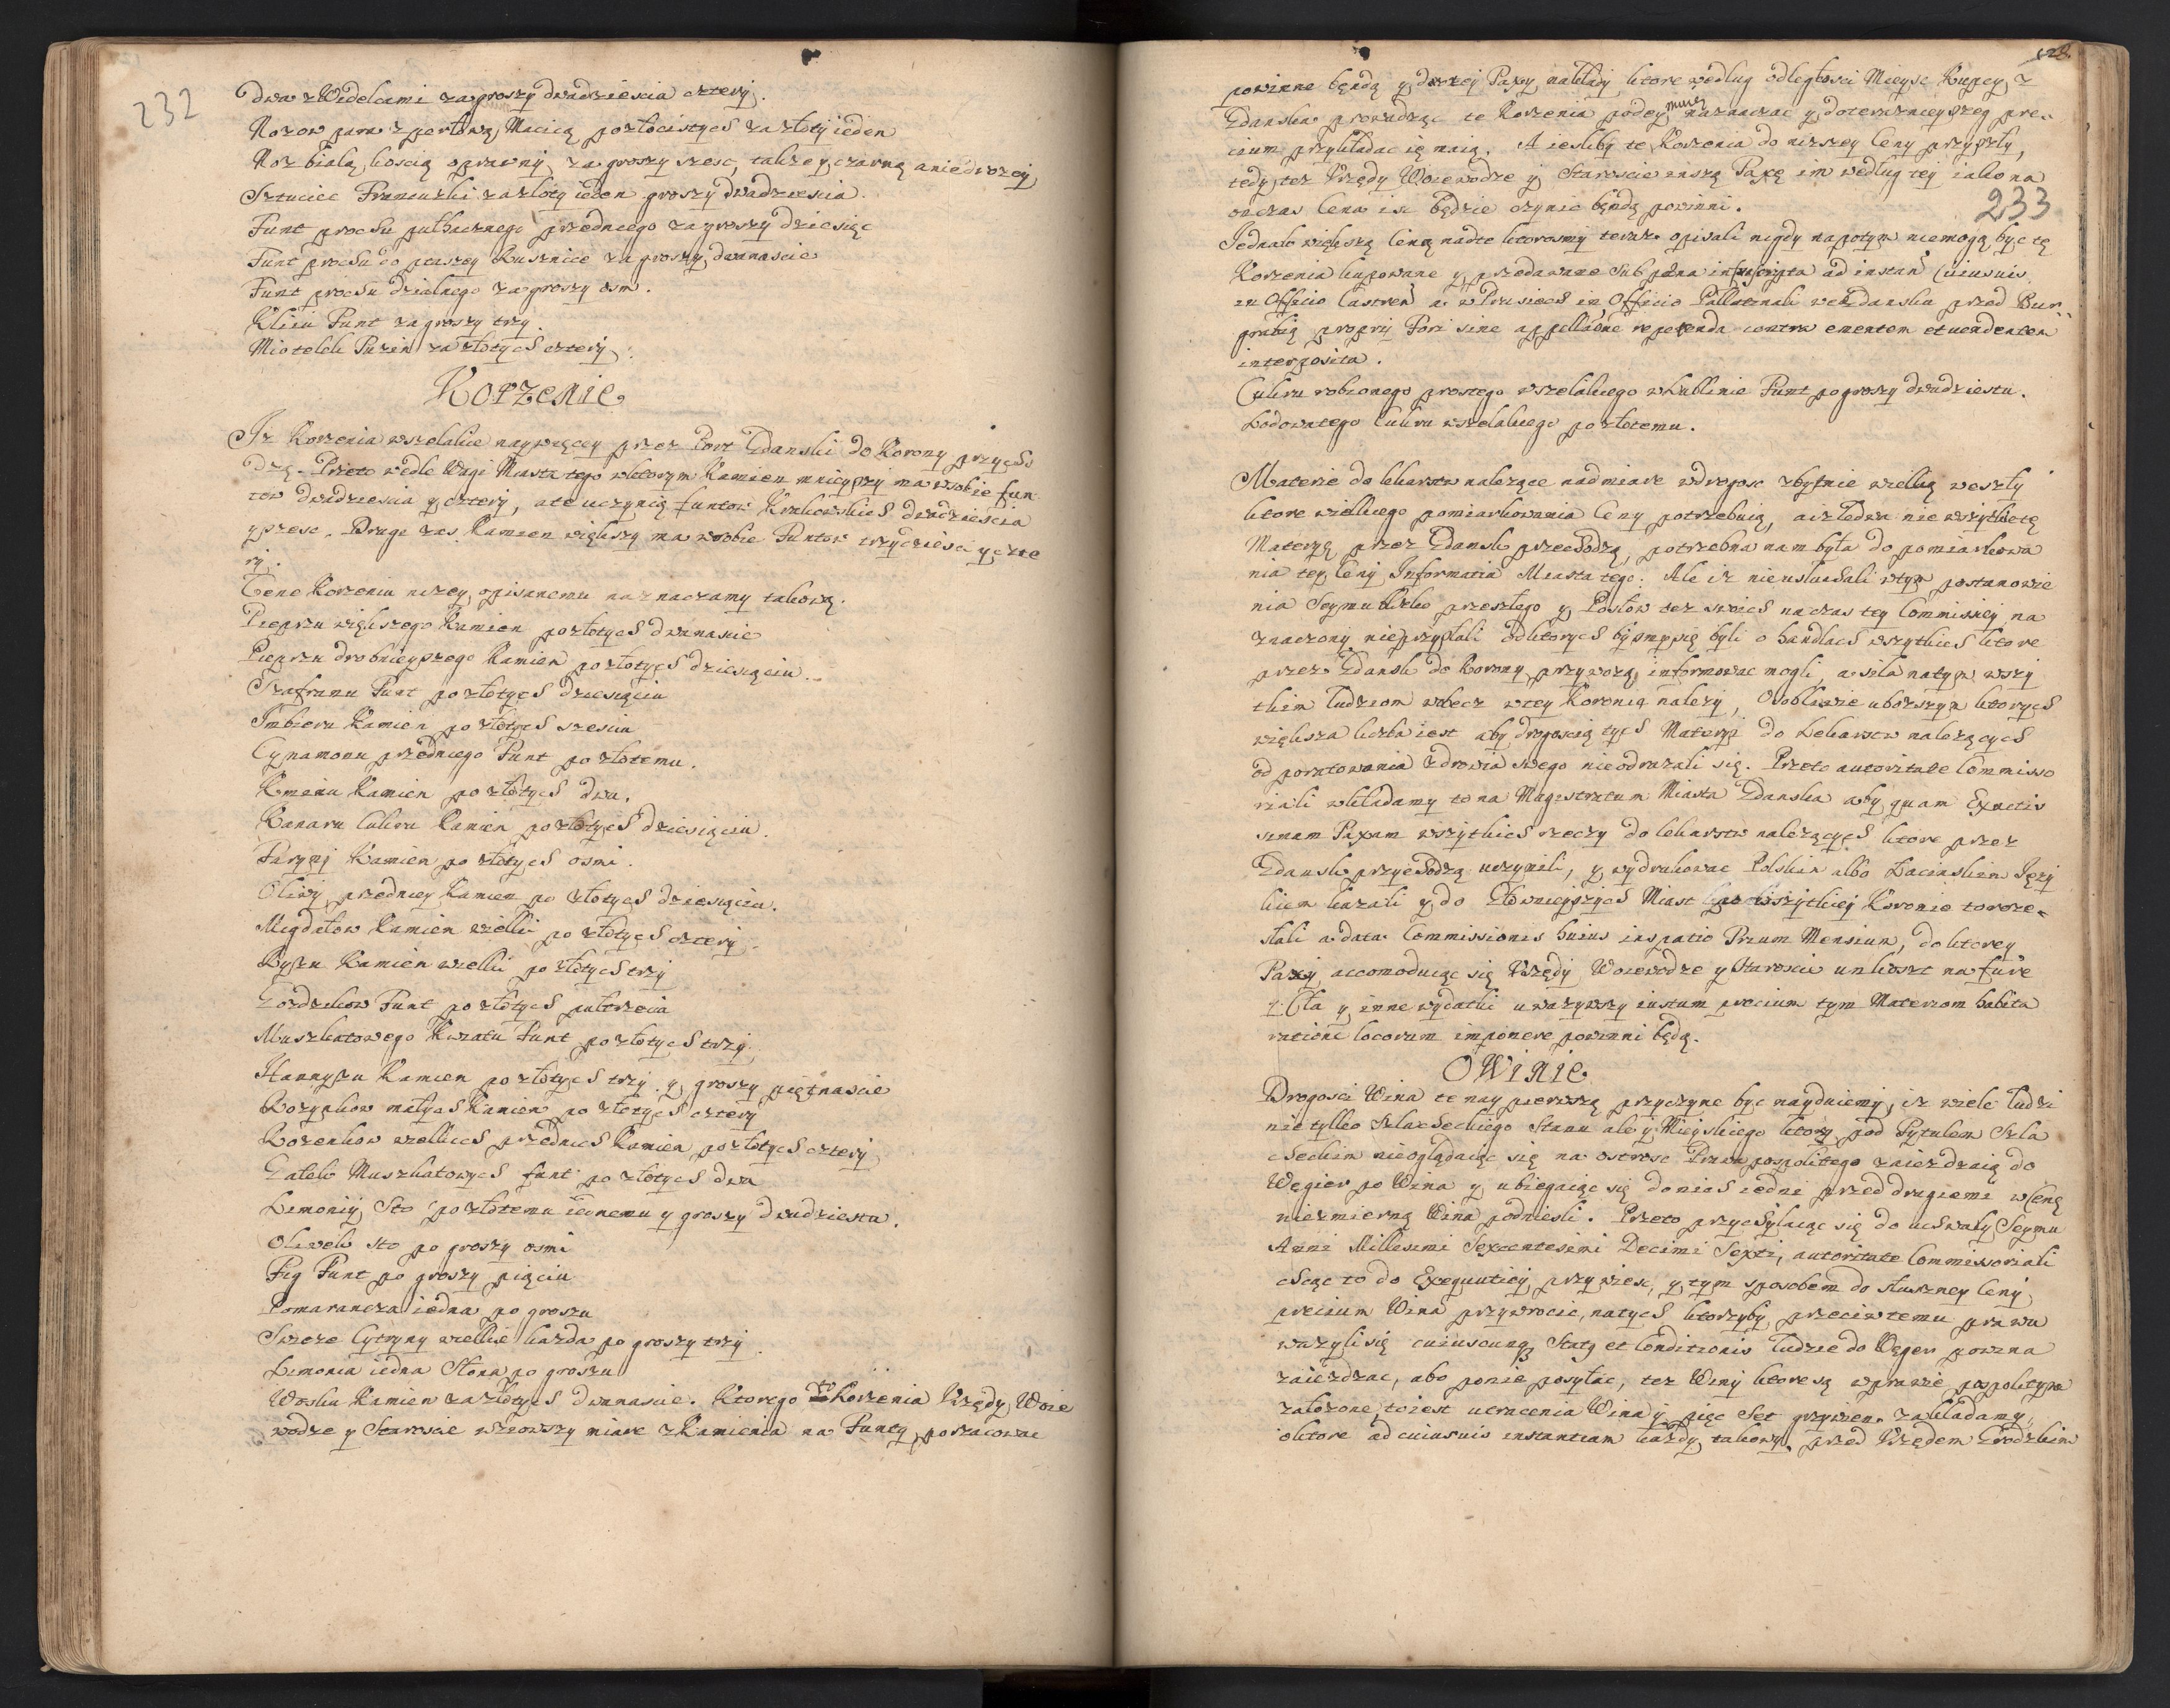 232
Dwa z Widelcami za groszy dwadziescia cztery.
Nozow para z perłową Macicą pozłocistych za złoty ieden
Noz białą koscią oprawny za groszy szesc, takze y czarną a niedrozey
Sztuciec Francuzki za złoty ieden groszy dwadziescia.
Funt prochu pułhacznego przedniego za groszy dziesięc
Funt prochu do ptaszey Rusznice za groszy dwanascie
Funt prochu działnego za groszy osm.
Kliiu Funt za groszy trzy
Miotełek Tuzin za złotych cztery.
Korzenie
Iz Korzenia wszelakie naywięcey przez Port Gdanski do Korony przycho
dzą. Przeto wedle Wagi Miasta tego w ktorym Kamien mnieyszy ma w sobie fun
tow dwadziescia y cztery, a te uczynią funtow Krakowskich dwadziescia
y szesc. Drugi zas Kamien większy ma w sobie Funtow trzydziesci y czte
ry.
Cene Korzeniu nizey opisanemu naznaczamy takową.
Pieprzu większego Kamien po złotych dwanascie
Pieprzu drobnieyszego Kamien po złotych dziesięciu.
Szafranu Funt po złotych dziesięciu
Imbieru Kamien po złotych szesciu
Cynamonu przedniego Funt po złotemu.
Kminu Kamien po złotych dwa.
Kanaru Cukru Kamien po złotych dziesięciu.
Faryny Kamien po złotych osmi.
Oliwy przedniey Kamien po złotych dziesięciu.
Migdałow Kamien wielki po złotych cztery
Ryżu Kamien wielki po złotych trzy
Gozdzikow Funt po złotych pułtrzecia
Muszkatowego Kwiatu Funt po złotych trzy
Hannyżu Kamien po złotych trzy y groszy piętnascie
Rozynkow małych Kamien po złotych cztery
Rozenkow wielkich przednich Kamien po złotych cztery
Gałek Muszkatowych funt po złotych dwa
Limoniy Sto po złotemu iednemu y groszy dwudziestu.
Oliwek sto po groszy osmi
Fig Funt po groszy pięciu
Pomarancza iedna po groszu
Swieze Cytryny wielkie kazda po groszy trzy
Limonia iedna Słona po groszu
Wosku Kamien za złotych dwanascie. Ktorego to Korzenia Vrzędy Woie
wodze y Staroscie wziowszy miare z Kamienia na Funty poszacowac
powinne będą y do tey Taxy nakłady ktore według odległosci Mieysc Kupcy z
Gdanska prowadząc te Korzenia podeymuią naznaczac y do teraznieyszeg pre-
cium przykładac ię maią. A iesliby te Korzenia do nizszey Ceny przyszły,
tedy tez Vrzędy Woiewodze y Staroscie inszą Taxę im według tey iako na
onczas Cena ich będzie czynic będą powinni.
233
Jednak większą Ceną nadte ktorosmy teraz opisali nigdy napotym niemogą byc te
Korzenia kupowane y przedawane sub pæna infrascripta ad instan Cuiusuis
in Officio Castren a w Prusiech in Officio Pallatinali we Gdansku przed Bur-
grabią proprij Fori sine appellatione repetenda contra ementem et uendentem
interposita.
Cukru robionego prostego wszelakiego w Lublinie Funt po groszy dwudziestu.
Lodowatego Cukru wszelakiego po złotemu.
Materie do lekarstw nalezące nad miare w drogosc zbytnie wielką weszły
ktore wielkiego pomiarkowania Ceny potrzebuią, a iz ledwa nie wszytkie te
Materyę przez Gdansk przechodzą, potrzebna nam była do pomiarkowa
nia tey Ceny Informatia Miasta tego. Ale iz nieusłuchali w tym postanowie
nia Seymu blisko przeszłego y Posłow tez swoich na czas tey Commissiey na
znaczony nieprzysłali od ktorych bysmy się byli o handlach wszytkich ktore
przez Gdansk do Korony przywozą informowac mogli, a siła natym wszy
tkim Ludziom wobec w tey Koronie nalezy, Osobliwie ubozszym ktorych
większa liczba iest aby drogoscią tych Materyi do Lekarstw nalezących
od poratowania zdrowia swego nieodrazali się. Przeto autoritate Commisso
riali wkładamy to na Magistratum Miasta Gdanska aby quam Exactis
simam Taxam wszytkich rzeczy do lekarstw nalezących ktore przez
Gdansk przychodzą uczynili, y wydrukowac Polskim albo Łacinskim Ięzy
kiem kazali y do Głownieyszych Miast po wszytkiey Koronie to roze-
słali a data Commissionis huius in spatio Trium Mensium, do ktorey
Taxy accomoduiąc się Vrzędy Woiewodze y Staroscie unkoszt na fure
Cła y inne wydatki uwazywszy iustum precium tym Materiom habita
ratione locorum imponere powinni będą.
O Winie
Drogosci Wina te nay pierwszą przyczyne byc nayduiemy, iz wiele ludzi
nie tylko Szlacheckiego Stanu ale y Mieyskiego ktorzy pod Tytułem Szla
checkim nieoglądaiąc się na ostrosc Prawa pospolitego zaiezdzaią do
Węgier po Wina y ubiegaiąc się do nich iedni przed drugiemi w Cenę
niezmierną Wina podniesli. Przeto przychylaiąc się do uchwały Seymu
Anni Millesimi Sexcentesimi Decimi Sexti, autoritate Commissoriali
chcąc to do Exequutiey przywiesc, y tym sposobem do słuszney Ceny
precium Wina przywrocic, na tych ktorzyby przeciwtemu prawu
wazyli się cuiuscunq Status et Conditionis ludzie do Węgier po wina
zaiezdzac, abo po nie posyłac, tez Winy ktore są w prawie pospolitym
załozone, to iest utracenia Wina y pięc Set grzywien zakładamy,
o ktore ad cuiusuis instantiam kazdy takowy przed Vrzędem Grodzkim